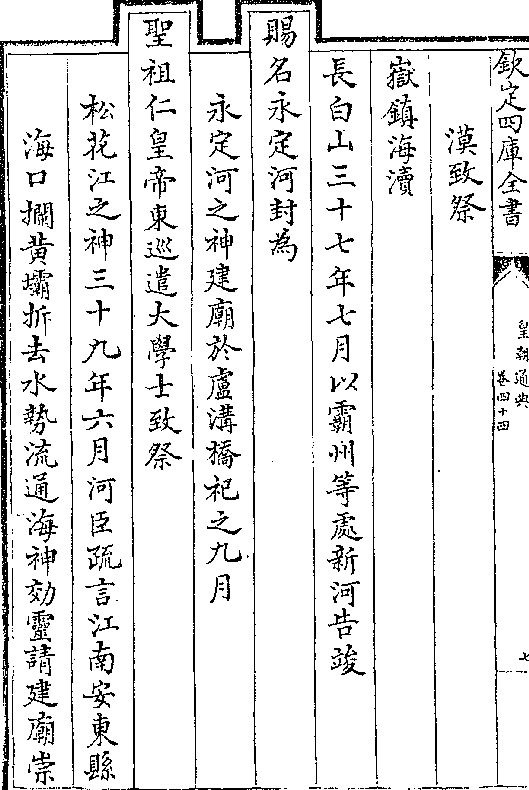 欽定四庫全書
皇朝通典
卷四十四
七
漠致祭
嶽鎮海瀆
長白山三十七年七月以霸州等處新河告竣
賜名永定河封為
永定河之神建廟於盧溝橋祀之九月
聖祖仁皇帝東巡遣大學士致祭
松花江之神三十九年六月河臣疏言江南安東縣
海口攔黃壩拆去水勢流通海神効靈請建廟崇